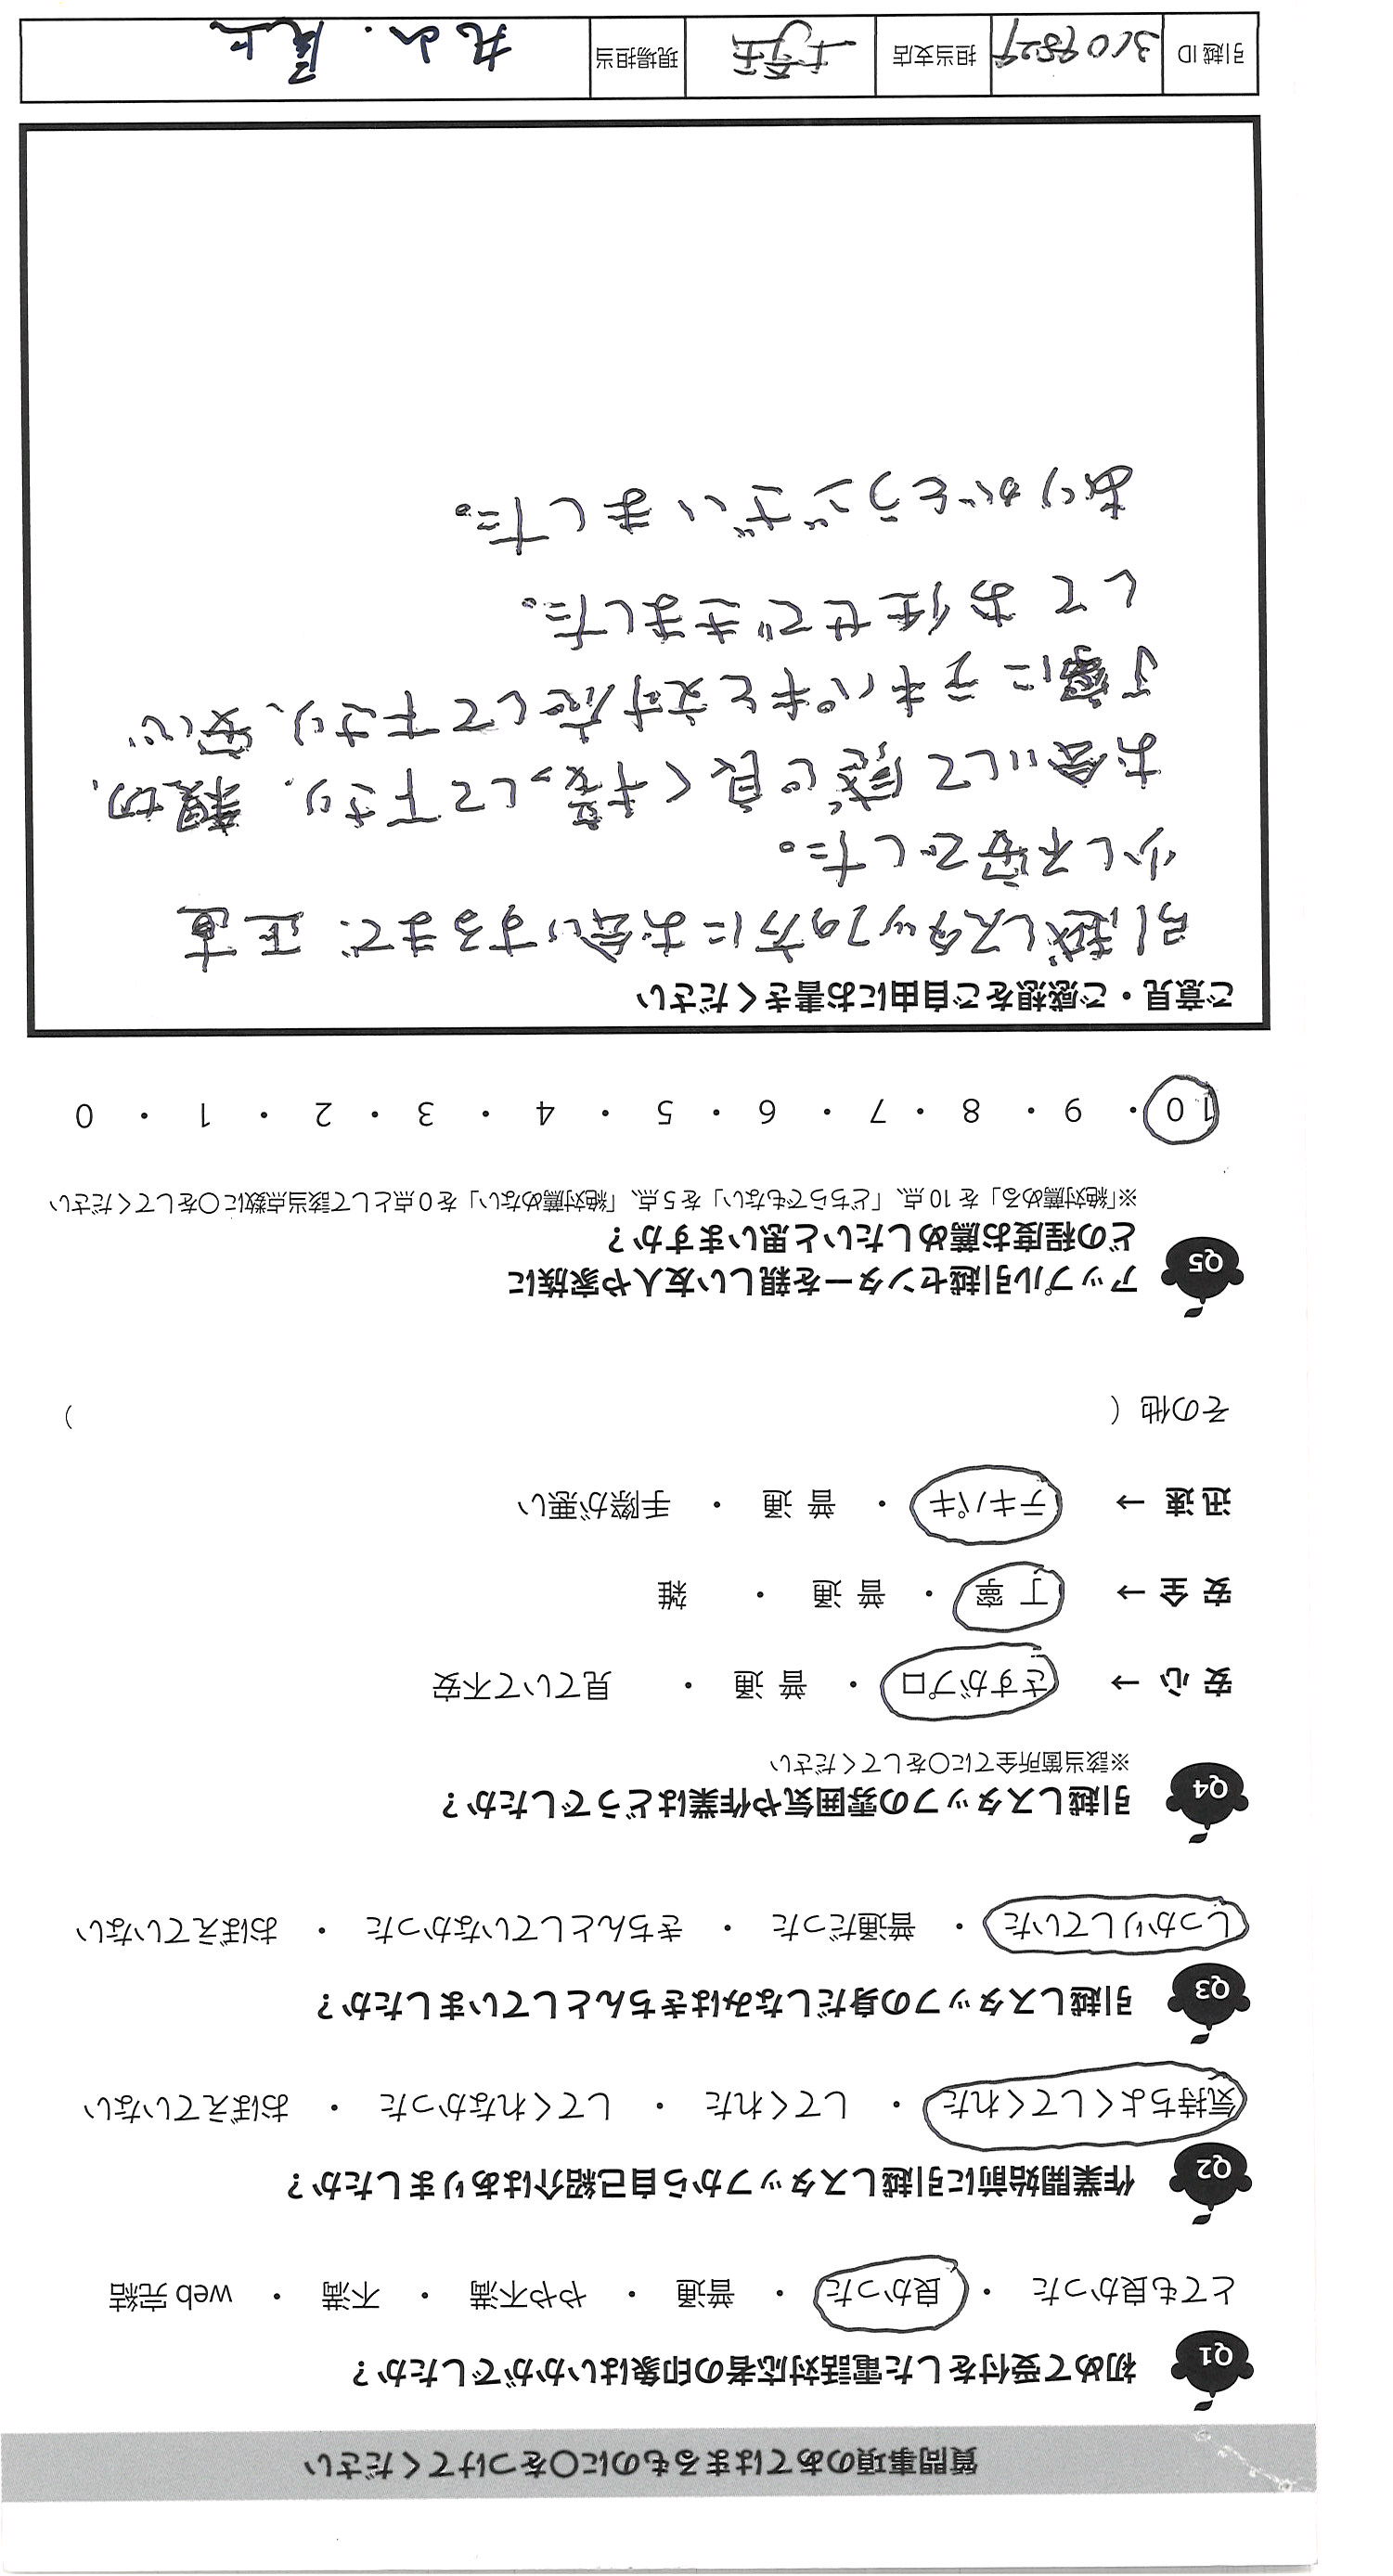 質問事項のあてはまるものに〇をつけてください
Q1 初めて受付をした電話対応者の印象はいかがでしたか？
とても良かった ・ 良かった ・ 普通 ・ やや不満 ・ 不満 ・ web 完結
Q2 作業開始前に引越しスタッフから自己紹介はありましたか？
気持ちよくしてくれた ・ してくれた ・ してくれなかった ・ おぼえていない
Q3 引越しスタッフの身だしなみはきちんとしていましたか？
しっかりしていた ・ 普通だった ・ きちんとしていなかった ・ おぼえていない
Q4 引越しスタッフの雰囲気や作業はどうでしたか？
※該当箇所全てに〇をしてください
安 心 → さすがプロ ・ 普 通 ・ 見ていて不安
安 全 → 丁 寧 ・ 普 通 ・ 雑
迅 速 → テキパキ ・ 普 通 ・ 手際が悪い
その他（ ）
Q5 アップル引越センターを親しい友人や家族に
どの程度お薦めしたいと思いますか？
※「絶対薦める」を 10 点、「どちらでもない」を 5 点、「絶対薦めない」を 0 点として該当点数に〇をしてください
10 ・ 9 ・ 8 ・ 7 ・ 6 ・ 5 ・ 4 ・ 3 ・ 2 ・ 1 ・ 0
ご意見・ご感想をご自由にお書きください
引越しスタッフの方にお会いするまで、正直
少し不安でした。
お会いして感じ良く接して下さり、親切、
丁寧にテキパキと対応して下さり、安心
してお任せできました。
ありがとうございました。
引越 ID 3609829 担当支店 埼玉 現場担当 丸山・尾上